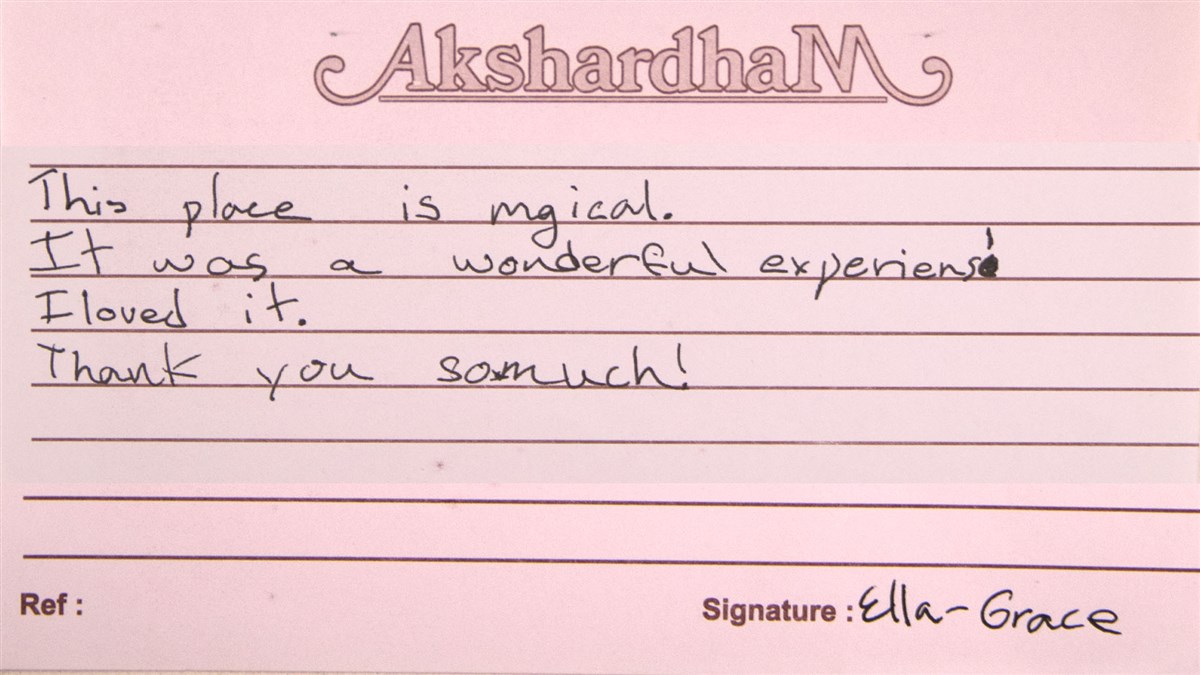 AkshardhaM
This place is mgical.
It was a wonderful experiens!
I loved it.
Thank you somuch!
Ref :
Signature : Ella-Grace